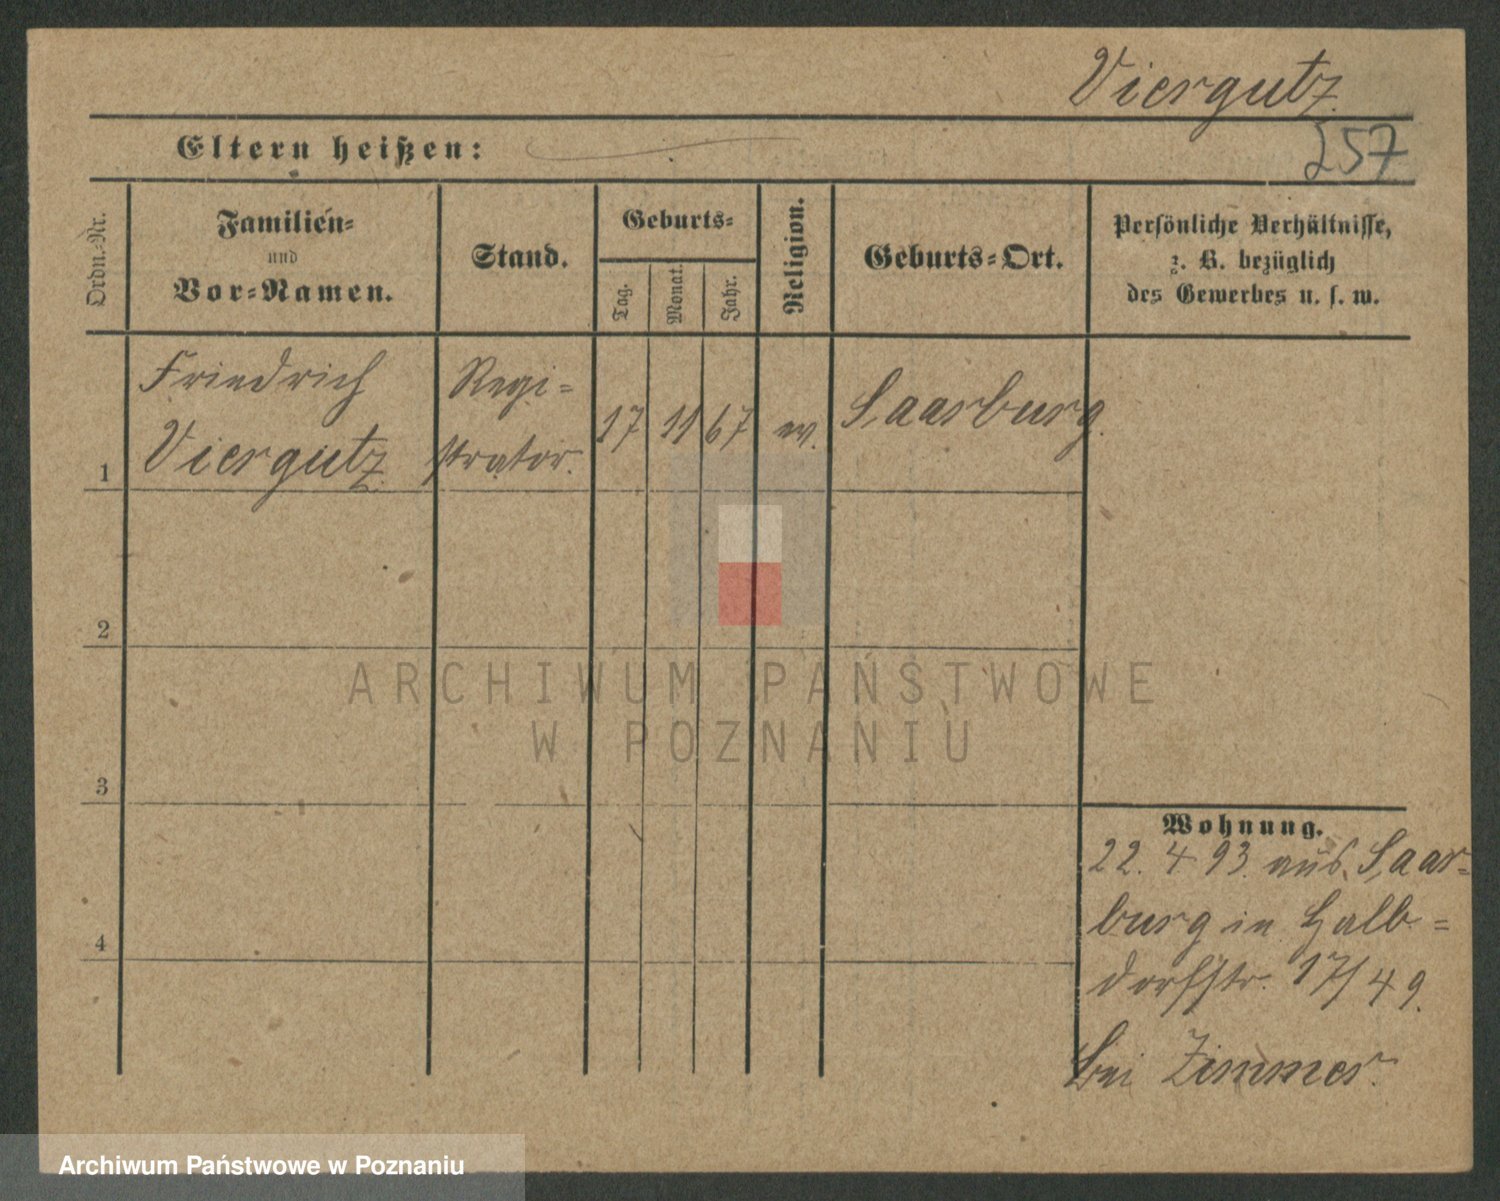 Viergutz.
257
Eltern heißen:
Ordn.-Nr.
Familien-
und
Vor-Namen.
Stand.
Geburts-
Tag.
Monat.
Jahr.
Religion.
Geburts-Ort.
Persönliche Verhältnisse,
z. B. bezüglich
des Gewerbes u. s. w.
1
Friedrich
Viergutz.
Regi-
strator.
17
11
67
ev.
Saarburg.
2
3
4
ARCHIWUM PAŃSTWOWE
W POZNANIU
Wohnung.
22. 4 93. aus Saar-
burg in Halb-
dorfstr. 17/49.
bei Zimmer.
Archiwum Państwowe w Poznaniu